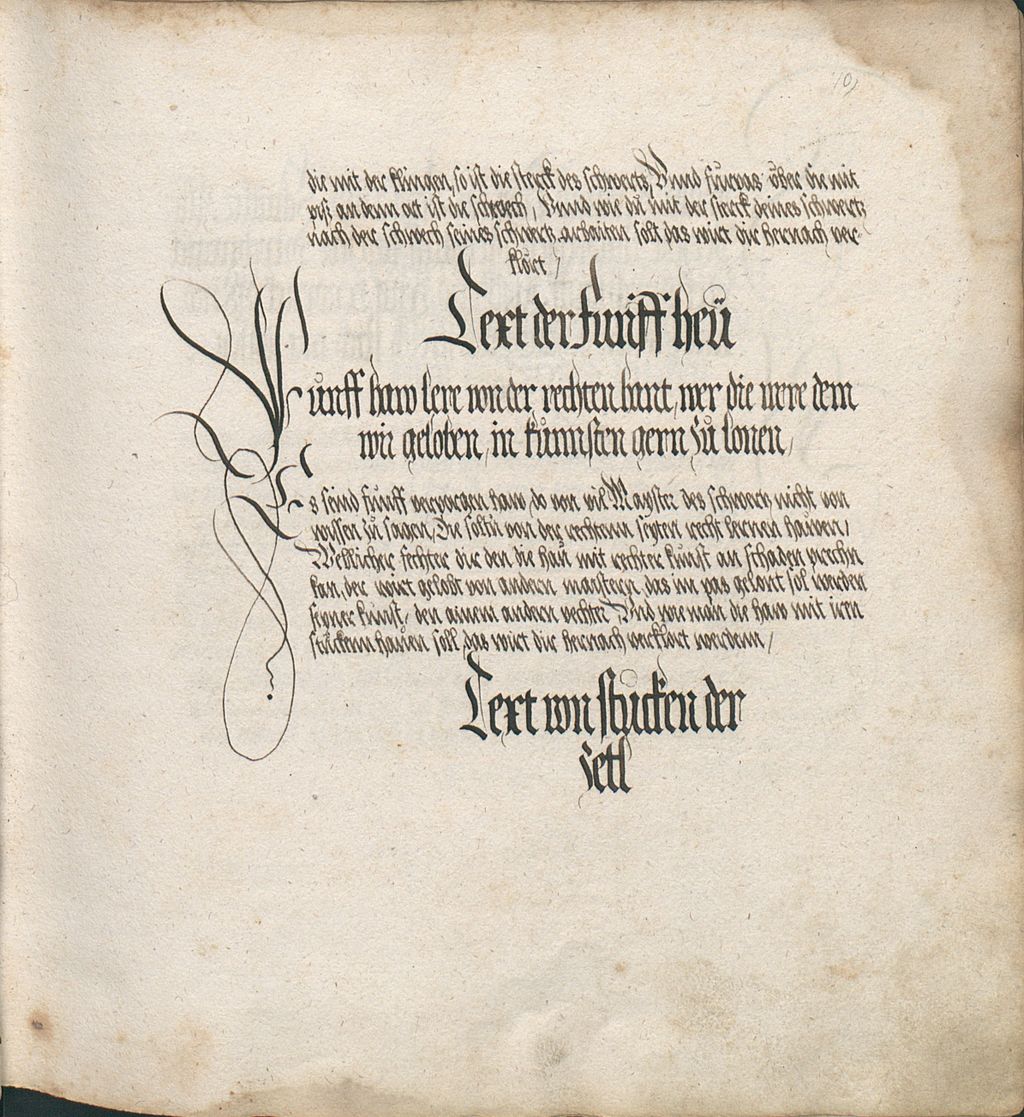 10
die mit der klingen, so ist die sterck des schwerts, Unnd furpas über die mit
pis an denn ort ist die schwech, Unnd wie dü mit der sterck deines schwerts
nach der schwech seines schwertz arbaiten solt das wirt dir hernach ver-
klört /
Text der funff heü
Fünff haw lere von der rechten hant, wer die were dem
wir geloben, in künnsten gern zu lonen /
Es seind funff verporgen haw, do von vil Mayster des schwerz nicht von
wissen zü sagen, Die soltü von der rechtenn seyten recht lernen hawen /
Wellicher fechter dir den die haü mit rechter kunst an schaden prechn
kan, der wirt gelobt von andern maystern, das im pas gelont sol werden
seyner kunst, den ainem andern vechter, Und wie man die haw mit iren
stückenn hauen soll, das wirt dir hernach verklört werdenn /
Text von stucken der
zetl